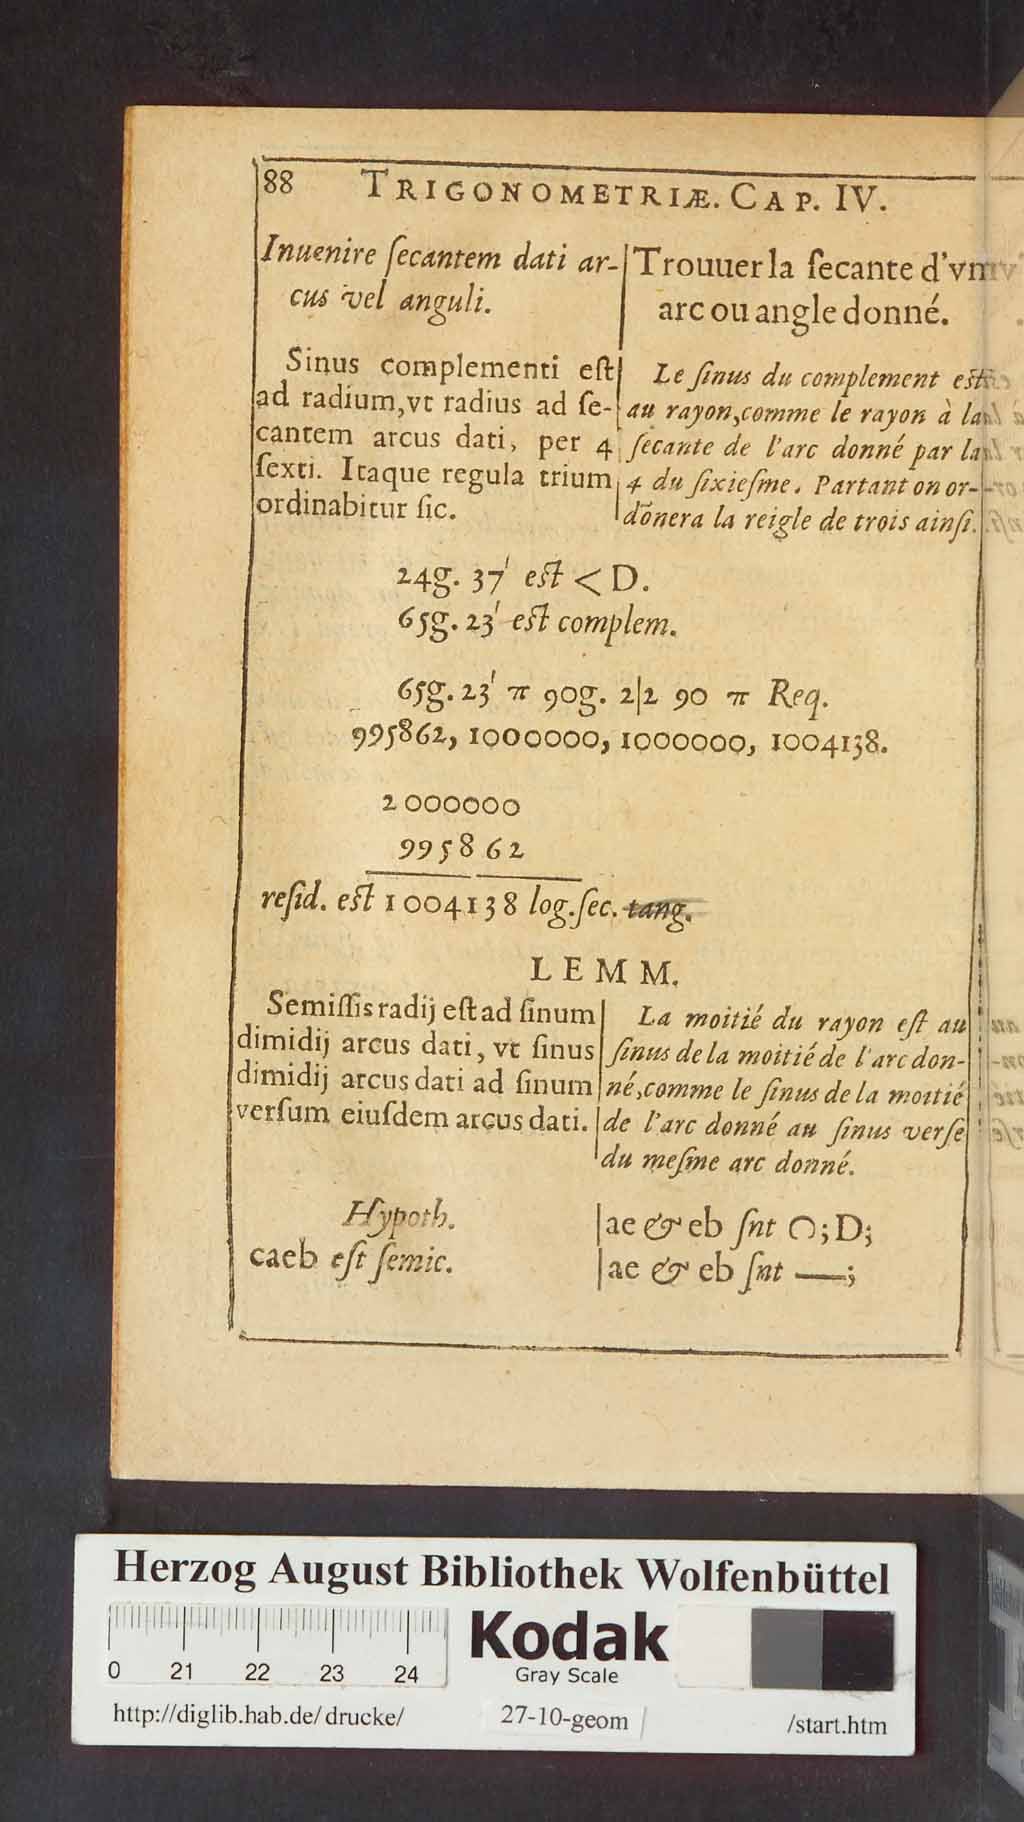 88 TRIGONOMETRIÆ. CAP. IV.
Inuenire ſecantem dati ar-
cus vel anguli.
Trouuer la ſecante d'vn
arc ou angle donné.
Sinus complementi eſt
ad radium, vt radius ad ſe-
cantem arcus dati, per 4
ſexti. Itaque regula trium
ordinabitur ſic.
Le ſinus du complement eſt
au rayon, comme le rayon à la
ſecante de l'arc donné par la
4 du ſixieſme. Partant on or-
dõnera la reigle de trois ainſi.
24g. 37' eſt < D.
65g. 23' eſt complem.
65g. 23' π 90g. 2|2 90 π Req.
995862, 1000000, 1000000, 1004138.
2000000
995862
reſid. eſt 1004138 log. ſec. tang.
LEMM.
Semiſſis radij eſt ad ſinum
dimidij arcus dati, vt ſinus
dimidij arcus dati ad ſinum
verſum eiuſdem arcus dati.
La moitié du rayon eſt au
ſinus de la moitié de l'arc don-
né, comme le ſinus de la moitié
de l'arc donné au ſinus verſe
du meſme arc donné.
Hypoth.
caeb eſt ſemic.
ae & eb ſnt ∩; D;
ae & eb ſnt —;
Herzog August Bibliothek Wolfenbüttel
0 21 22 23 24
Kodak
Gray Scale
http://diglib.hab.de/drucke/ 27-10-geom /start.htm